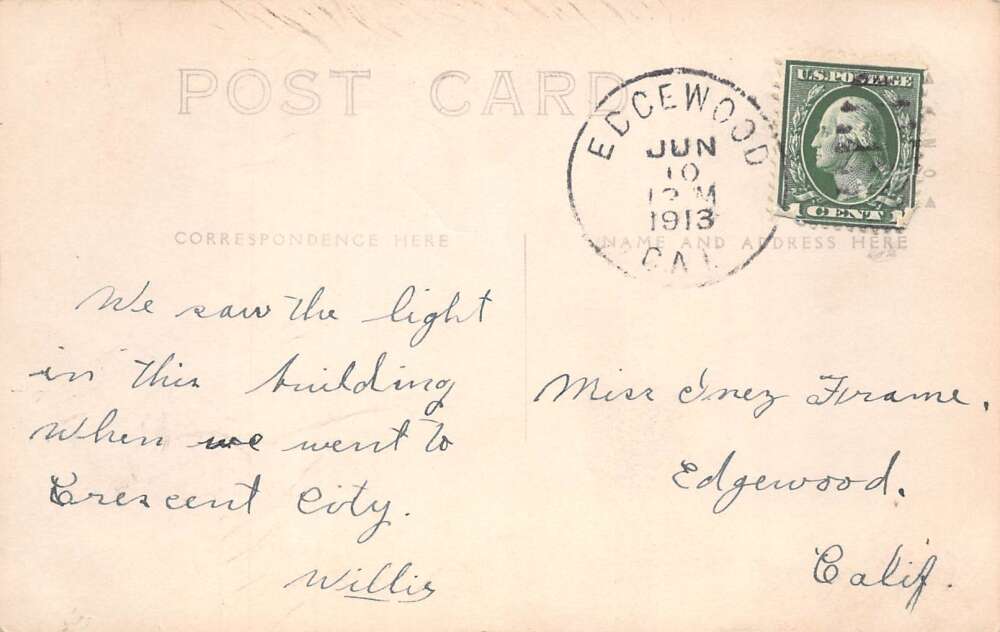 POST CARD
EDGEWOOD
JUN
10
1913
CAL
U.S. POSTAGE
1 CENT 1
CORRESPONDENCE HERE
NAME AND ADDRESS HERE
We saw the light
in this building
when we went to
Crescent City.
Willis
Miss Inez Frame.
Edgewood.
Calif.